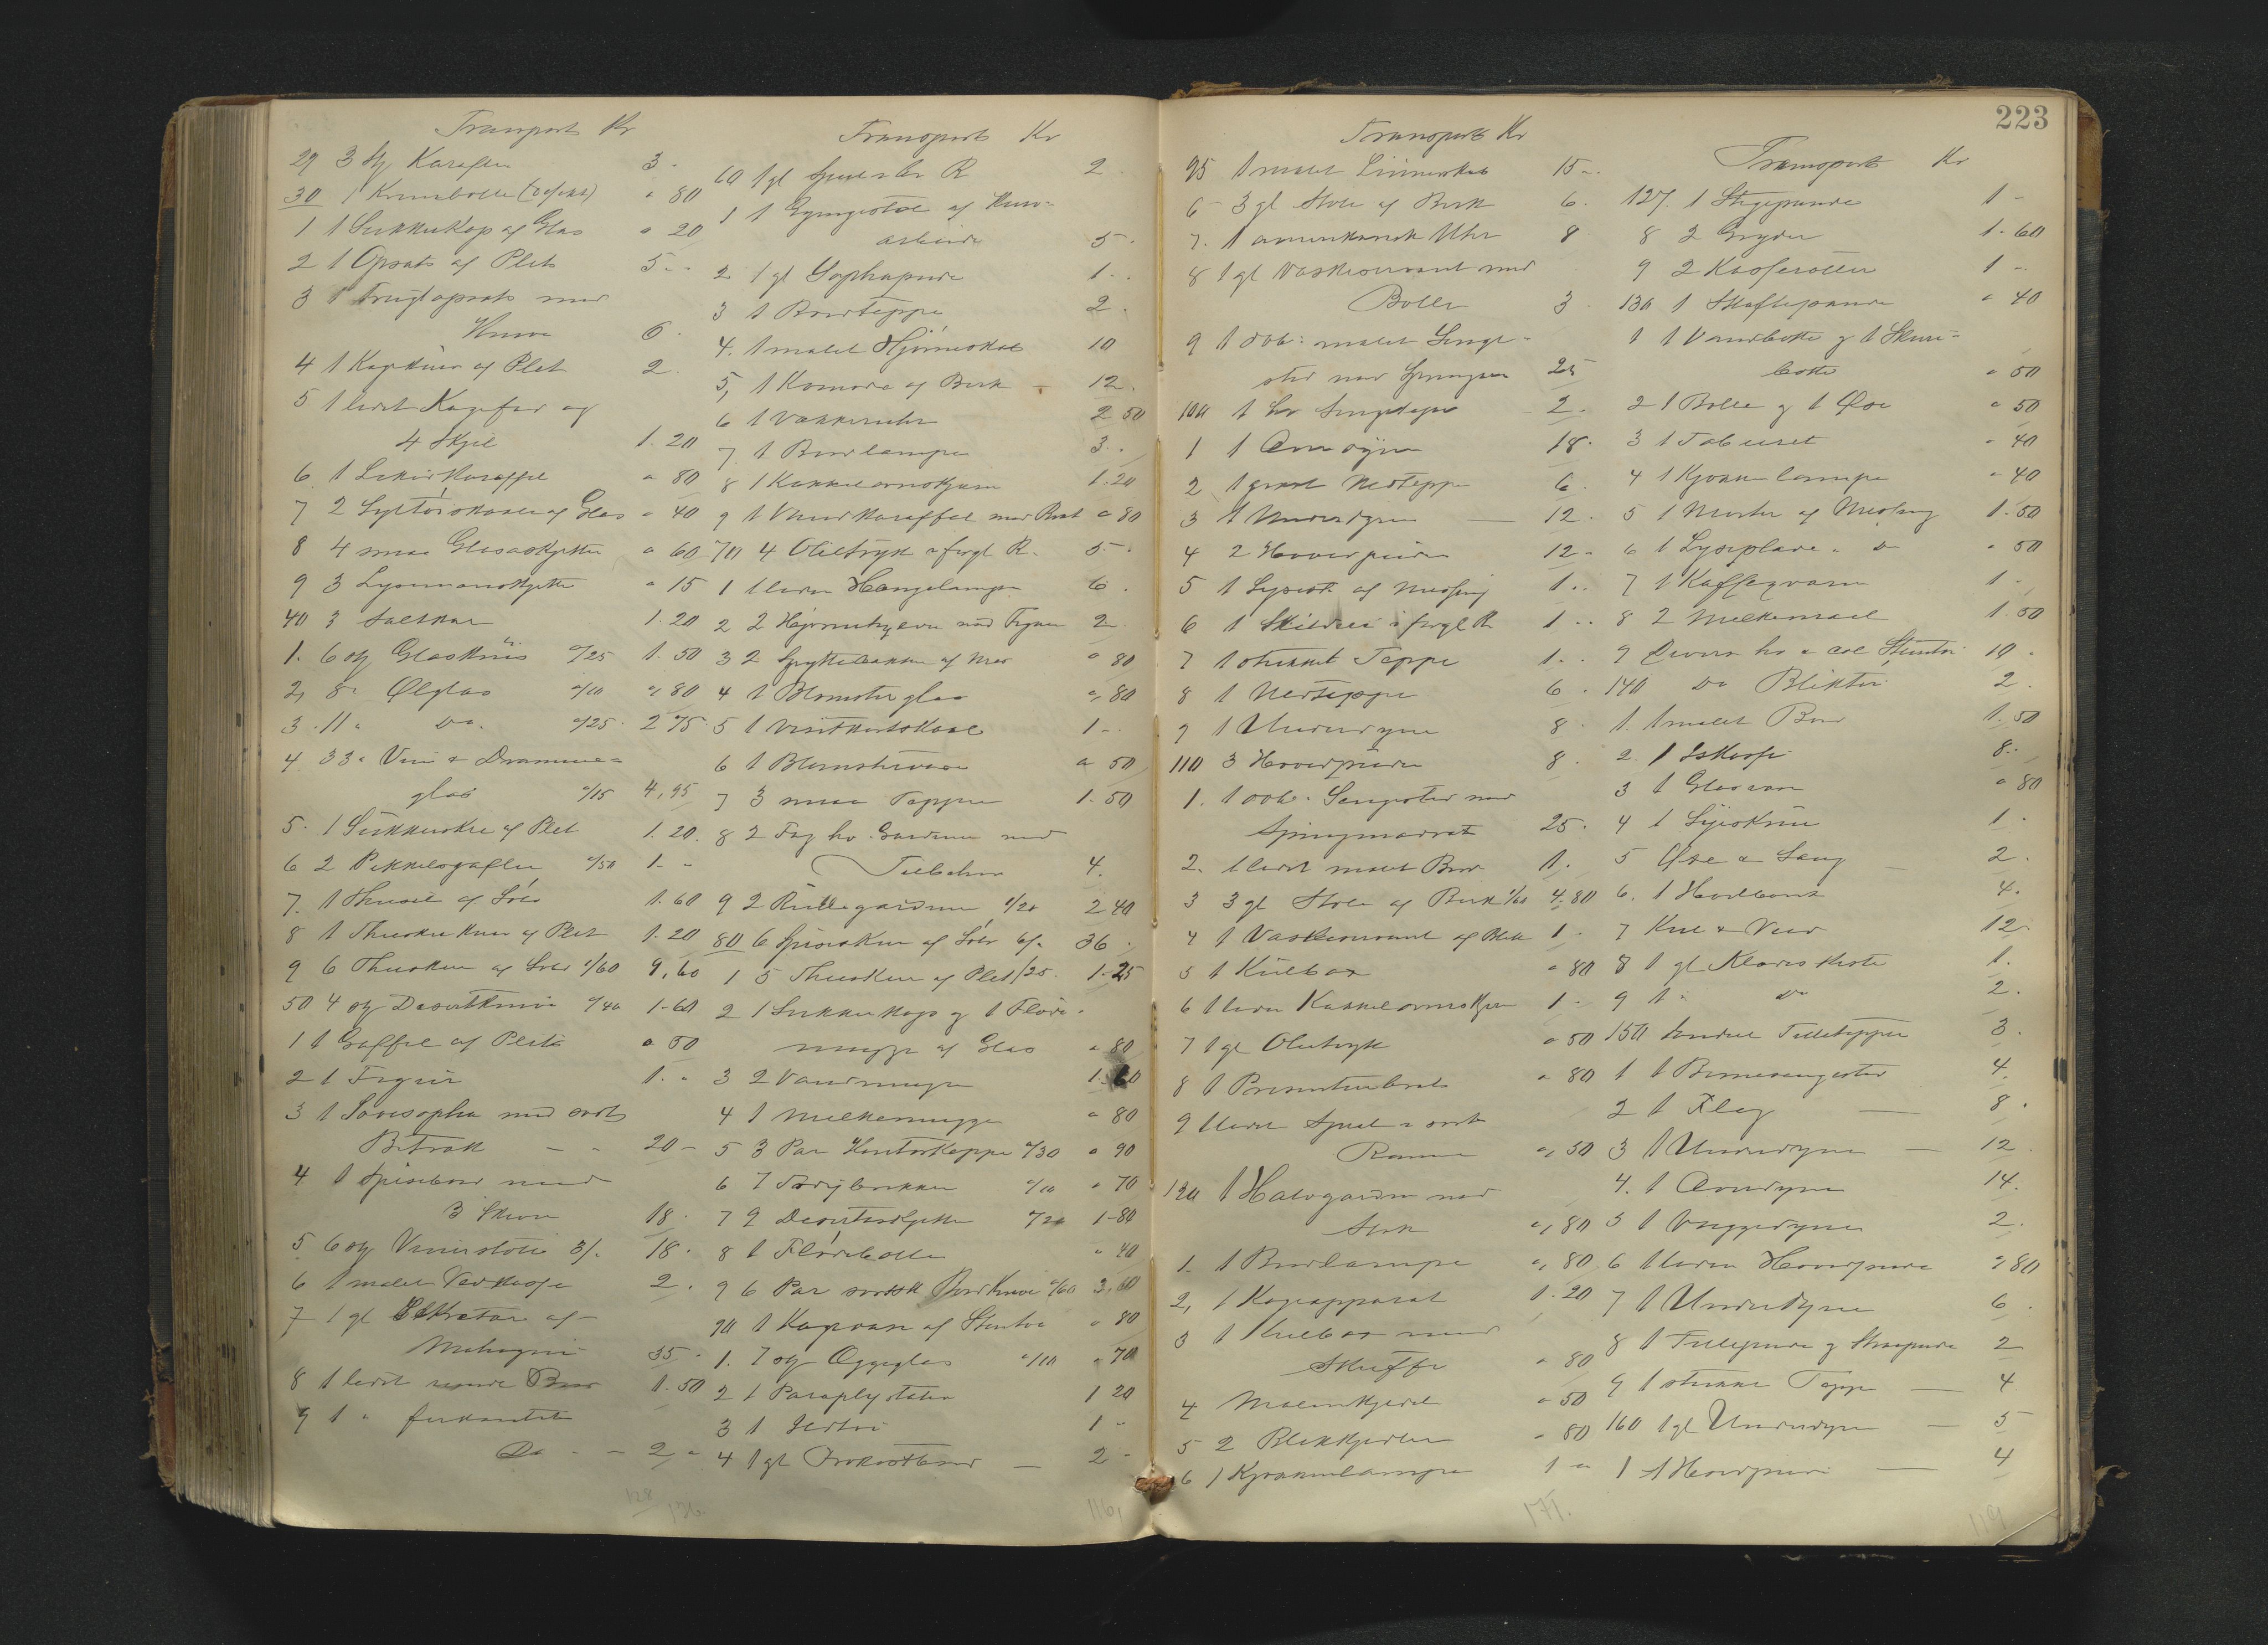 Transport Kr
29 3 Stk Karafler 3 -
30 1 Krusbolle (defekt) " 80
1 1 Sukkerkop af Glas " 20
2 1 Opsats af Plet 5 - -
3 1 Frugtopsats med
Knive 6 -
4 1 Kagekniv af Plet 2 -
5 1 lidet Kagefad og
4 Skjel 1. 20
6 1 Likørkaraffel " 80
7 2 Syltøiskaale af Glas " 40
8 4 smaa Glasasketter " 60
9 3 Lysemanschetter " 15
40 3 Saltkar 1. 20
1. 6 stk Glasknive "/25 1. 50
2, 8 " Ølglas "/10 " 80
3. 11 " Do. "/25 2 75
4 33 " Vin & Dramme-
glas "/15 4,95
5. 1 Sukkerske af Plet 1. 20
6 2 Pikkelsgafler "/50 1. "
7. 1 Thesil af Sølv 1. 60
8 1 Theske af Plet 1. 20
9 6 Theskeer af Sølv 1/60 9,60
50 4 stk Desertknive "/40 1-60
1 1 Gaffel af Plet " 50
2 1 Figur 1. "
3 1 Sovesopha med sort
Betræk - - 20 -
4 1 Spisebord med
3 Skiver 18 -
5 6 stk Vienerstole 3/- 18 -
6 1 malet Vedkasse 2 -
7 1 gl Sekretær af
Mahogni 35 -
8 1 lidet rundt Bord 1. 50
9 1 " firkantet
Do - - 2 "
128
136.
Transport Kr
60 1 gl Speil & br R 2 -
1 1 Gyngestol af Kurv-
arbeide 5 -
2 1 gl Sophapude 1 - -
3 1 Bordteppe 2 -
4. 1 malet Hjørneskab 10
5, 1 Komode af Birk - 12 -
6 1 Vækkeruhr 2 50
7 1 Bordlampe 3 - -
8 1 Kakkelovnsskjærm 1. 20
9 1 Vandkaraffel med Bret " 80
70 4 Olietryk i forgl R. 5 -
1 1 liden Hængelampe 6 -
2 2 Hjørnehylder med Figurer 2 -
3 2 Spyttebakker af Mes " 80
4 1 Blomsterglas ", 80
5 1 Visitkortskaal 1 - -
6 1 Blomstervase " 50
7 3 smaa Tepper 1. 50
8 2 Fag hv. Gardiner med
Tilbehør 4.
9 2 Rullegardiner 1/20 2 40
80 6 Spiseskeer af Sølv 6/- 36 -
1 5 Theskeer af Plet /25 - 1. 25
2 1 Sukkerkop & 1 Fløde-
mugge af Glas " 80
3 2 Vandmugger 1. 60
4 1 Melkemugge " 80
5 3 Par Kontorkopper "/30 " 90
6 7 " "/10 " 70
7 9 Deserttallerker "/20 1-80
8 1 Flødebolle " 40
9 6 Par norsk Bordknive "/60 3,60
90 1 Kagevase af Stentøi " 80
1. 7 stk Æggeglas "/10 " 70
2 1 Paraplystativ 1 20
3 1 1 "
4 1 gl Frokostbord - 2 -
116,
223
Transport Kr
95 1 malet Linnedskab 15 - -
6 3 gl Stole af Birk 6 -
7. 1 amerikansk Uhr 8 -
8 1 gl Vaskeservant med
Bolle 3 -
9 1 dob: malet Seng-
sted med 25
100 1 hv Sengeteppe 2 -
1 1 Overdyne 18 -
2 1 Vedteppe 6 -
3 1 Underdyne - 12 -
4 2 Hovedpuder 12 -
5 1 Lysestk af Messing 1 - -
6 1 Skilderi i forgl R 1 - -
7 1 strikket Teppe 1 - -
8 1 Vedteppe 6 -
9 1 Underdyne 8 -
110 3 Hovedpuder 8 -
1. 1 dob. Sengested med
Springmadrat 25 -
2. 1 lidet malet Bord 1 -
3 3 gl Stole af Birk 1/60 4. 80
4 1 Vaskeservant af Blik 1 -
5 1 Kulbox " 80
6 1 liden Kakkelovnsskjærm 1 -
7 1 gl Olietryk " 50
8 1 Presenterbret " 80
9 1 lidet Speil i sort
Ramme ", 50
120 1 Halvgardin med
Stok ", 80
1. 1 Bordlampe ", 80
2, 1 Kogeapparat 1. 20
3 1 Kulbox med
Skuffe " 80
4 " 50
5 2 Blikkjedler " 80
6 1 Kjøkkenlampe 1 "
171.
Transport Kr
127. 1 Stegepande 1 -
8 2 Gryder 1. 60
9 2 Kasseroller 1 -
130 1 Skaftepande " 40
1 1 Vandbøtte & 1 Skure-
bøtte " 50
2 1 Bolle & 1 Øse " 50
3 1 Taburet " 40
4 1 Kjøkkenlampe " 40
5 1 Morter af Messing 1. 50
6 1 Lyseplade " Do " 50
7 1 Kaffeqværn 1 -
8 2 Melkespand 1. 50
9 Diverse hv & col Stentøi 10 -
140 Do Bliktøi 2 -
1. 1 malet Bord 1. 50
2. 1 Iskasse 8 - -
3 1 Glasvase " 80
4 1 Syskrin 1 -
5 Øxe & Saug 2 -
6. 1 Høvlbænk 4 -
7 Kul & Ved 12 -
8 1 gl Klædeskiste 1 -
9 1 " Do 2 -
150 Andel Filletepper 3 -
1 1 Barnesengsted 4 -
2 1 Flag - 8 -
3 1 Underdyne - 12 -
4. 1 Overdyne 14 -
5 1 Vuggedyne 2 -
6 1 liden Hovedpude " 80
7 1 Underdyne 6 -
8 1 Fillepude & Straapude 2
9 1 strikket Teppe - 4
160 1 gl Underdyne - 5
1 1 Hovedpude - 4
119